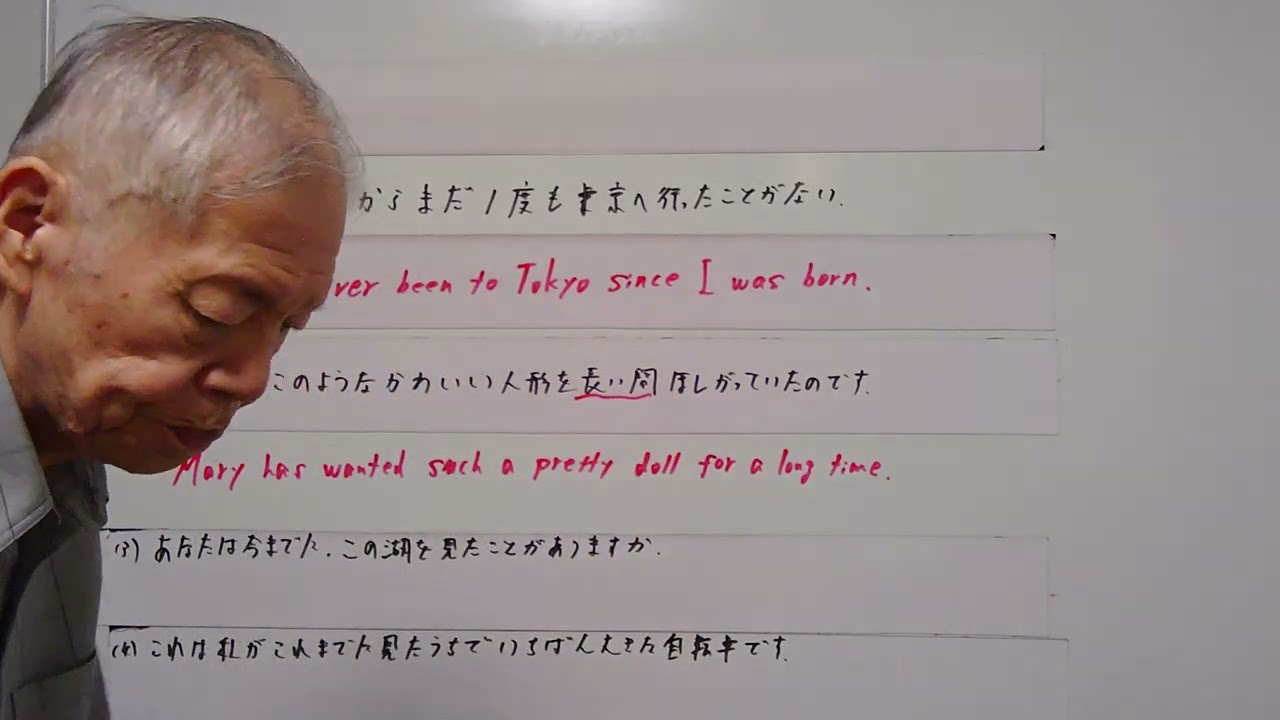 からまだ1度も東京へ行ったことがない.
ver been to Tokyo since I was born.
このようなかわいい人形を長い間ほしがっていたのです.
Mary has wanted such a pretty doll for a long time.
(3) あなたは今までに、この湖を見たことがありますか.
(4) これは私がこれまでに見たうちでいちばん大きな自転車です.